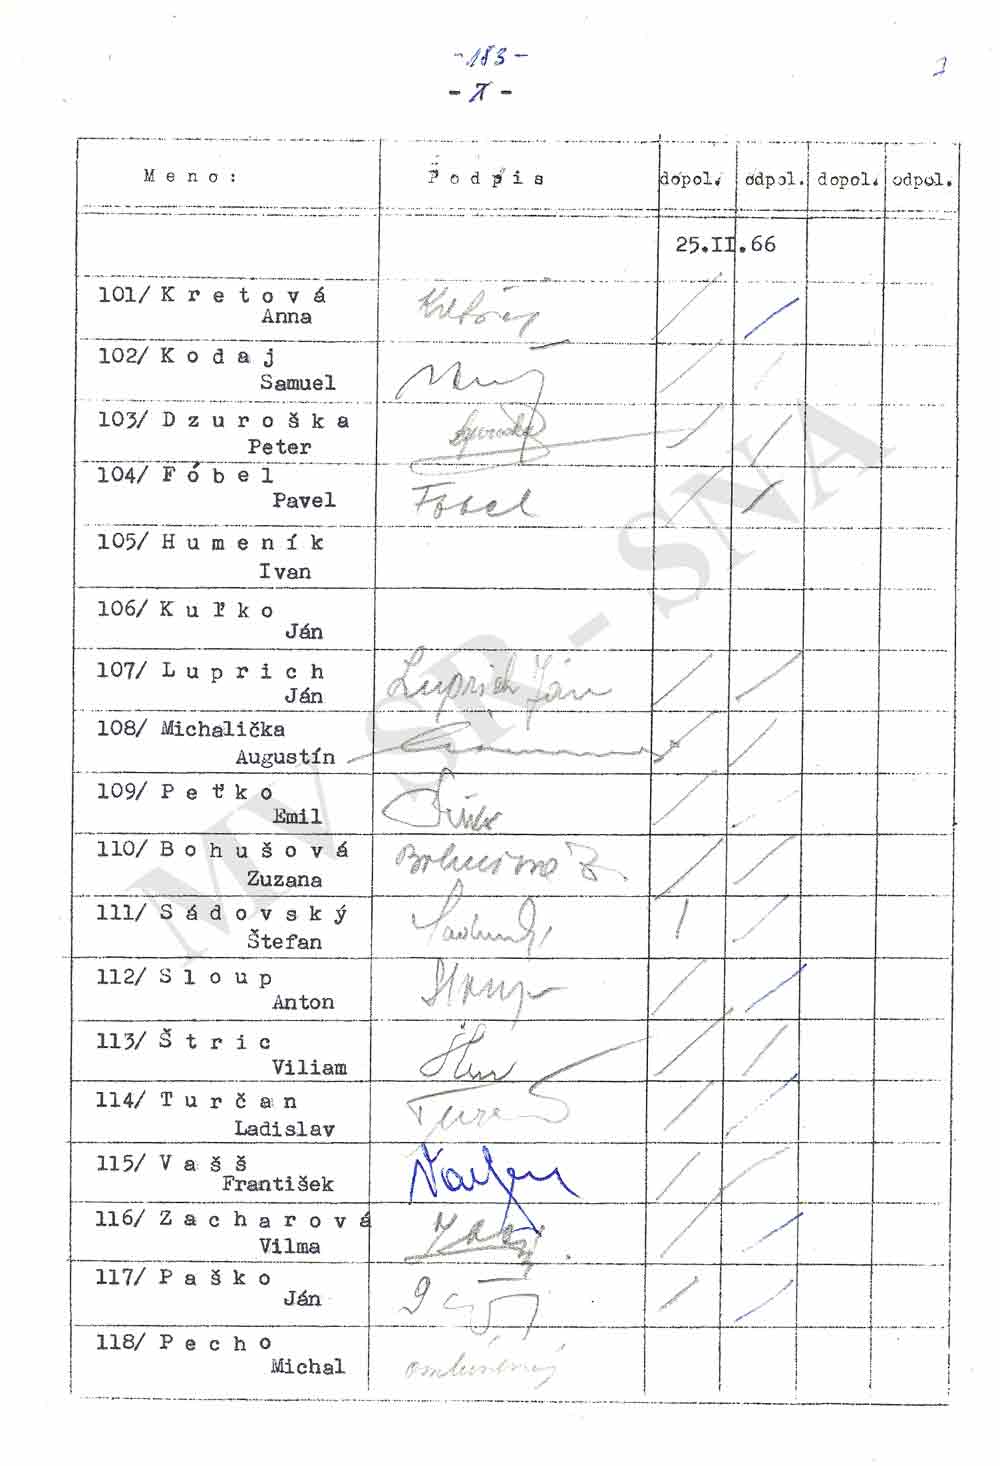 -183-
- 7 -
Meno: Podpis dopol. odpol. dopol. odpol.
25.II.66
101/ Kretová
Anna
102/ Kodaj
Samuel
103/ Dzuroška
Peter
104/ Fóbel
Pavel
Fobel
105/ Humeník
Ivan
106/ Kuľko
Ján
107/ Luprich
Ján
Luprich Ján
108/ Michalička
Augustín
109/ Peťko
Emil
110/ Bohušová
Zuzana
Bohusova Z.
111/ Sádovský
Štefan
112/ Sloup
Anton
Sloup
113/ Štric
Viliam
114/ Turčan
Ladislav
115/ Vašš
František
116/ Zacharová
Vilma
117/ Paško
Ján
118/ Pecho
Michal
omluvený
MV SR - SNA